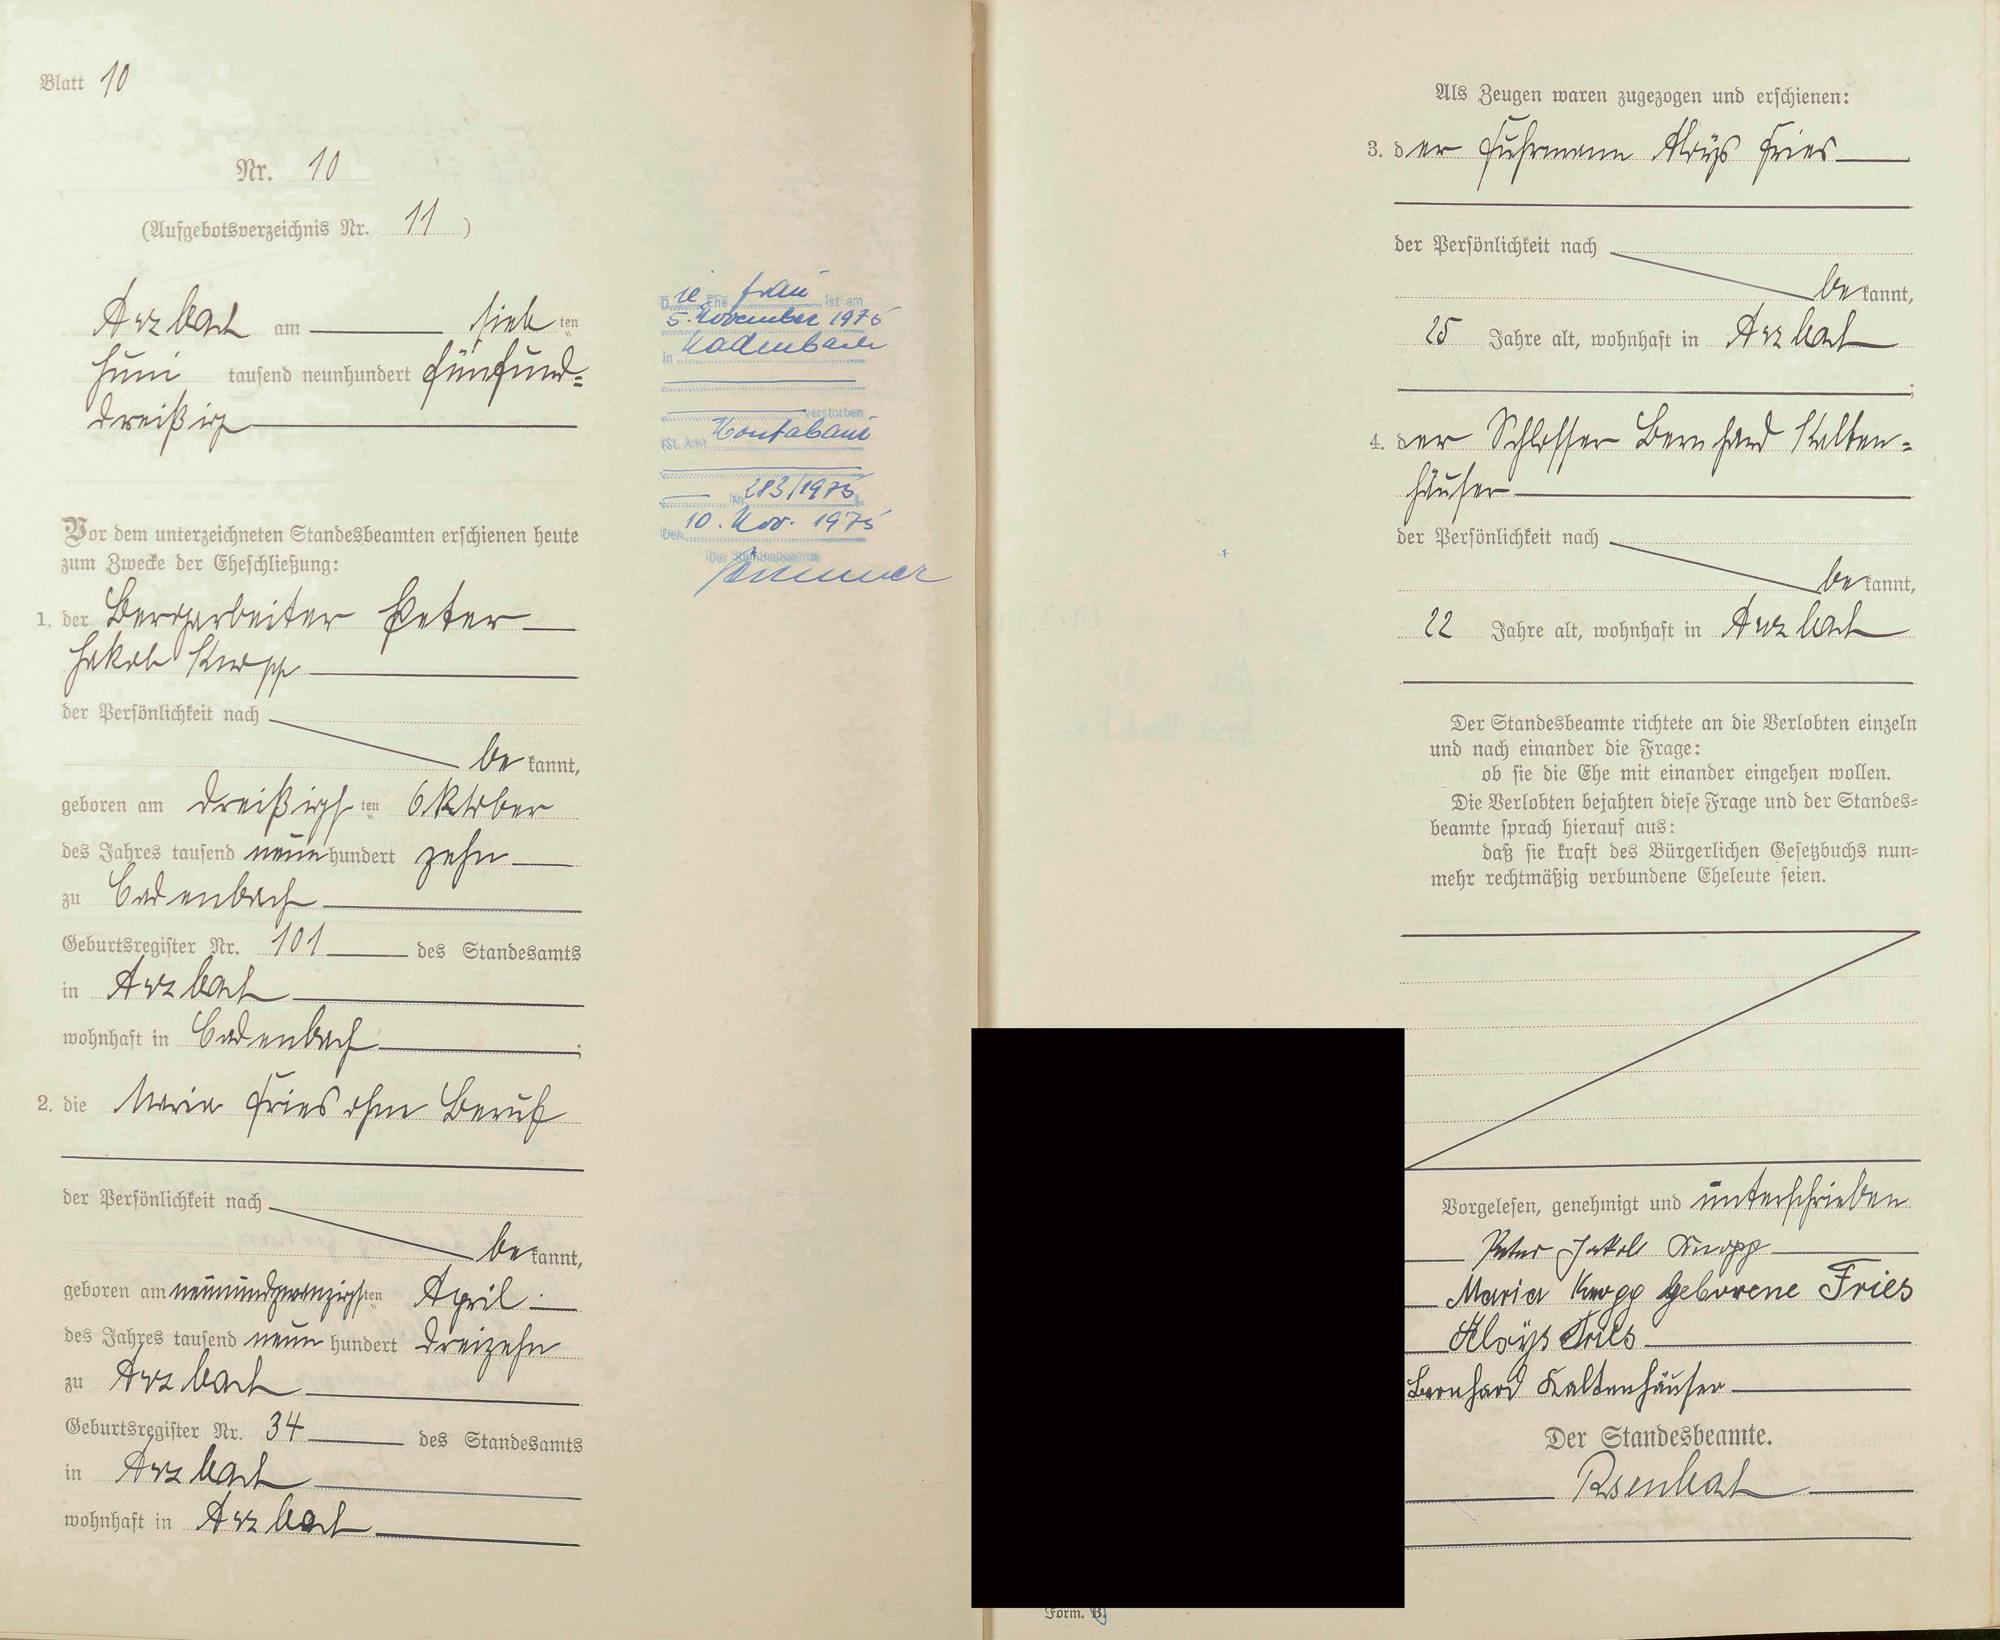 Blatt 10
Nr. 10
(Aufgebotsverzeichnis Nr. 11)
Arzbach am sieb ten
Juni tausend neunhundert fünfund-
dreißig
Vor dem unterzeichneten Standesbeamten erschienen heute
zum Zwecke der Eheschließung:
1. der Bergarbeiter Peter
Jakob Knopp
der Persönlichkeit nach
be kannt,
geboren am dreißigs ten Oktober
des Jahres tausend neun hundert zehn
zu Cadenbach
Geburtsregister Nr. 101 des Standesamts
in Arzbach
wohnhaft in Cadenbach ;
2. die Maria Fries ohne Beruf
der Persönlichkeit nach
be kannt,
geboren am neunundzwanzigs ten April
des Jahres tausend neun hundert dreizehn
zu Arzbach
Geburtsregister Nr. 34 des Standesamts
in Arzbach
wohnhaft in Arzbach
Die Ehefrau ist am
5. November 1975
in Kadenbach
verstorben
(St. Amt Montabaur
Nr. 283/1975
Den 10. Nov. 1975
Der Standesbeamte
Als Zeugen waren zugezogen und erschienen:
3. der Fuhrmann Aloys Fries
der Persönlichkeit nach
be kannt,
25 Jahre alt, wohnhaft in Arzbach
;
4. der Schlosser Bernhard Kalten-
häuser
der Persönlichkeit nach
be kannt,
22 Jahre alt, wohnhaft in Arzbach
Der Standesbeamte richtete an die Verlobten einzeln
und nach einander die Frage:
ob sie die Ehe mit einander eingehen wollen.
Die Verlobten bejahten diese Frage und der Standes-
beamte sprach hierauf aus:
daß sie kraft des Bürgerlichen Gesetzbuchs nun-
mehr rechtmäßig verbundene Eheleute seien.
Vorgelesen, genehmigt und unterschrieben
Peter Jakob Knopp
Maria Knopp geborene Fries
Aloys Fries
Bernhard Kaltenhäuser
Der Standesbeamte.
Form. B.